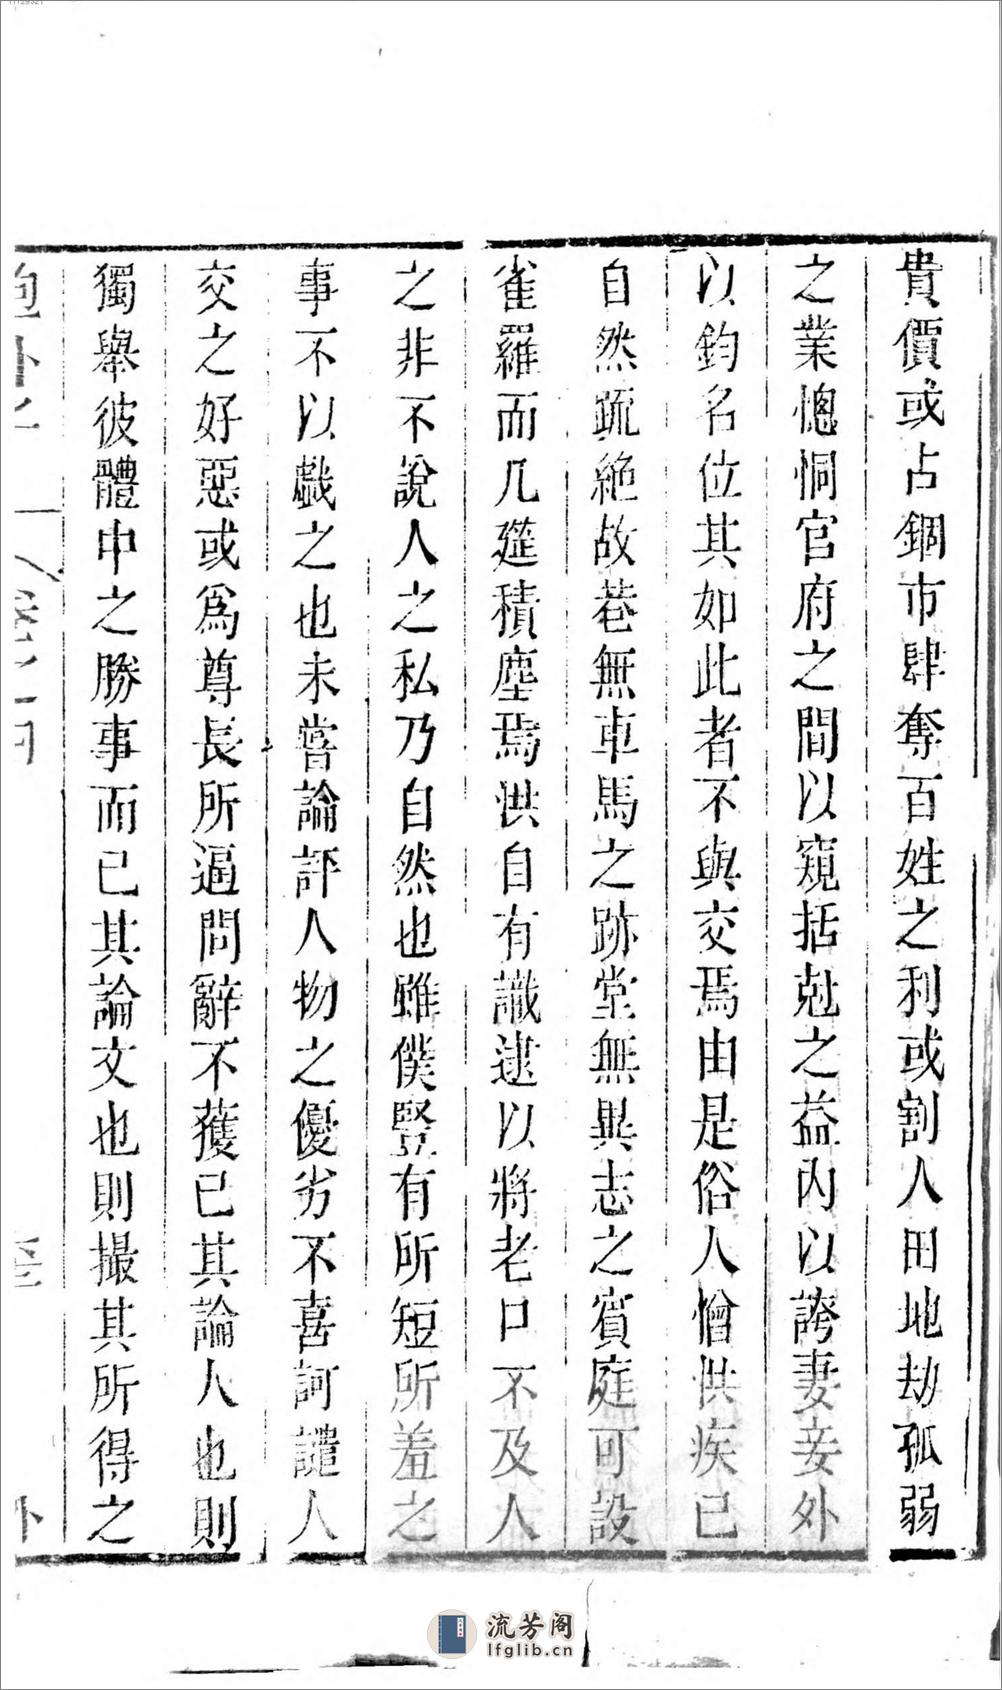 貴價或占錮市肆奪百姓之利或割人田地劫孤弱
之業惚恫官府之間以窺掊尅之益内以誇妻妾外
以釣名位其如此者不與交焉由是俗人憎洪疾已
自然疏絶故巷無車馬之跡堂無異志之賓庭可設
雀羅而几筵積塵焉洪自有識逮以將老口不及人
之非不說人之私乃自然也雖僕豎有所短所羞之
事不以戲之也未嘗論評人物之優劣不喜訶譴人
交之好惡或爲尊長所逼問辭不獲已其論人也則
獨舉彼體中之勝事而已其論文也則撮其所得之
流芳阁
lfglib.cn